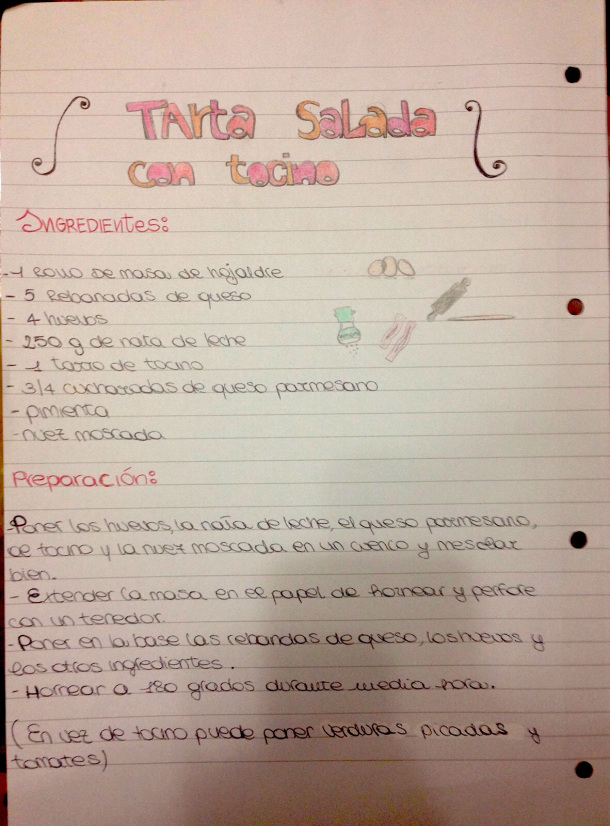 TARTA SALADA
con tocino
INGREDIENTES:
- 1 ROLLO DE masa de hojaldre
- 5 Rebanadas de queso
- 4 huevos
- 250 g de nata de leche
- 1 tarro de tocino
- 3/4 cucharradas de queso parmesano
- pimienta
- nuez moscada
Preparación:
- Poner los huevos, la nata de leche, el queso parmesano,
ce tocino y la nuez moscada en un cuenco y mesclar
bien.
- Extender la masa en el papel de hornear y perfore
con un tenedor.
- Poner en la base las rebandas de queso, los huevos y
los otros ingredientes.
- Hornear a 180 grados durante media hora.
(En vez de tocino puede poner verduras picadas y
tomates)